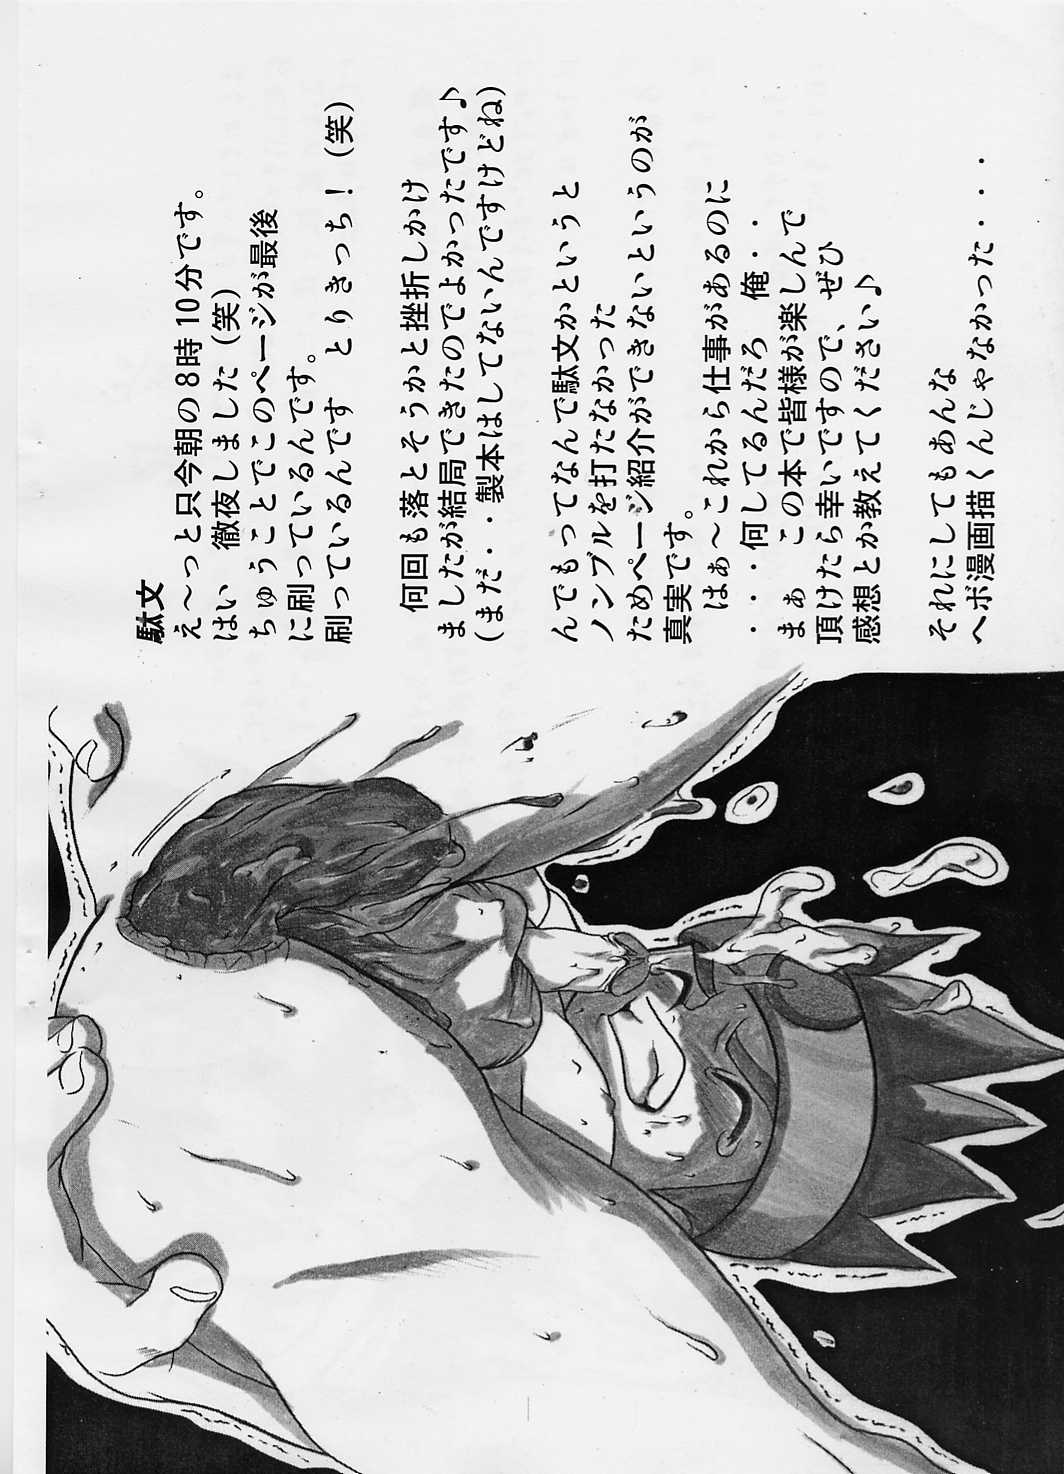 駄文
え～っと只今朝の8時10分です。
はい　徹夜しました(笑)
ちゅうことでこのページが最後
に刷っているんです。
刷っているんです　とりきっち！(笑)
何回も落とそうかと挫折しかけ
ましたが結局できたのでよかったです♪
(まだ・・製本はしてないんですけどね)
んでもってなんで駄文かというと
ノンブルを打たなかった
ためページ紹介ができないというのが
真実です。
はぁ～これから仕事があるのに
・・・何してるんだろ　俺・・
まぁ　この本で皆様が楽しんで
頂けたら幸いですので、ぜひ
感想とか教えてください♪
それにしてもあんな
ヘボ漫画描くんじゃなかった・・・